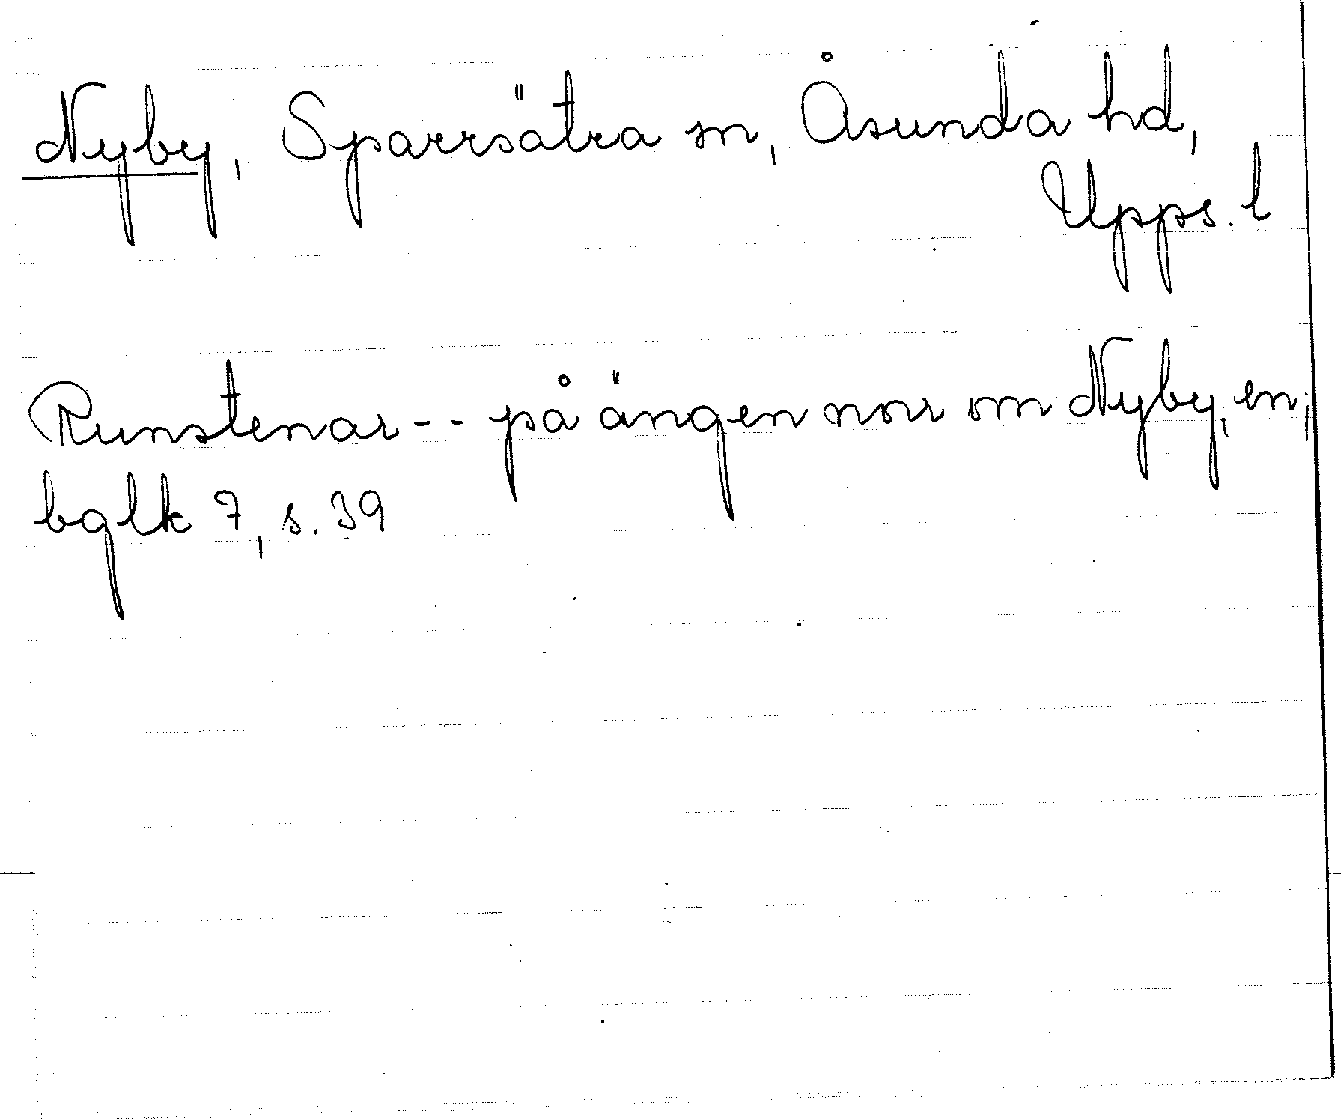 Nyby, Sparrsätra sn, Åsunda hd,
Upps. l
Runstenar -- på ängen norr om Nyby, en;
bglk 7, s. 39